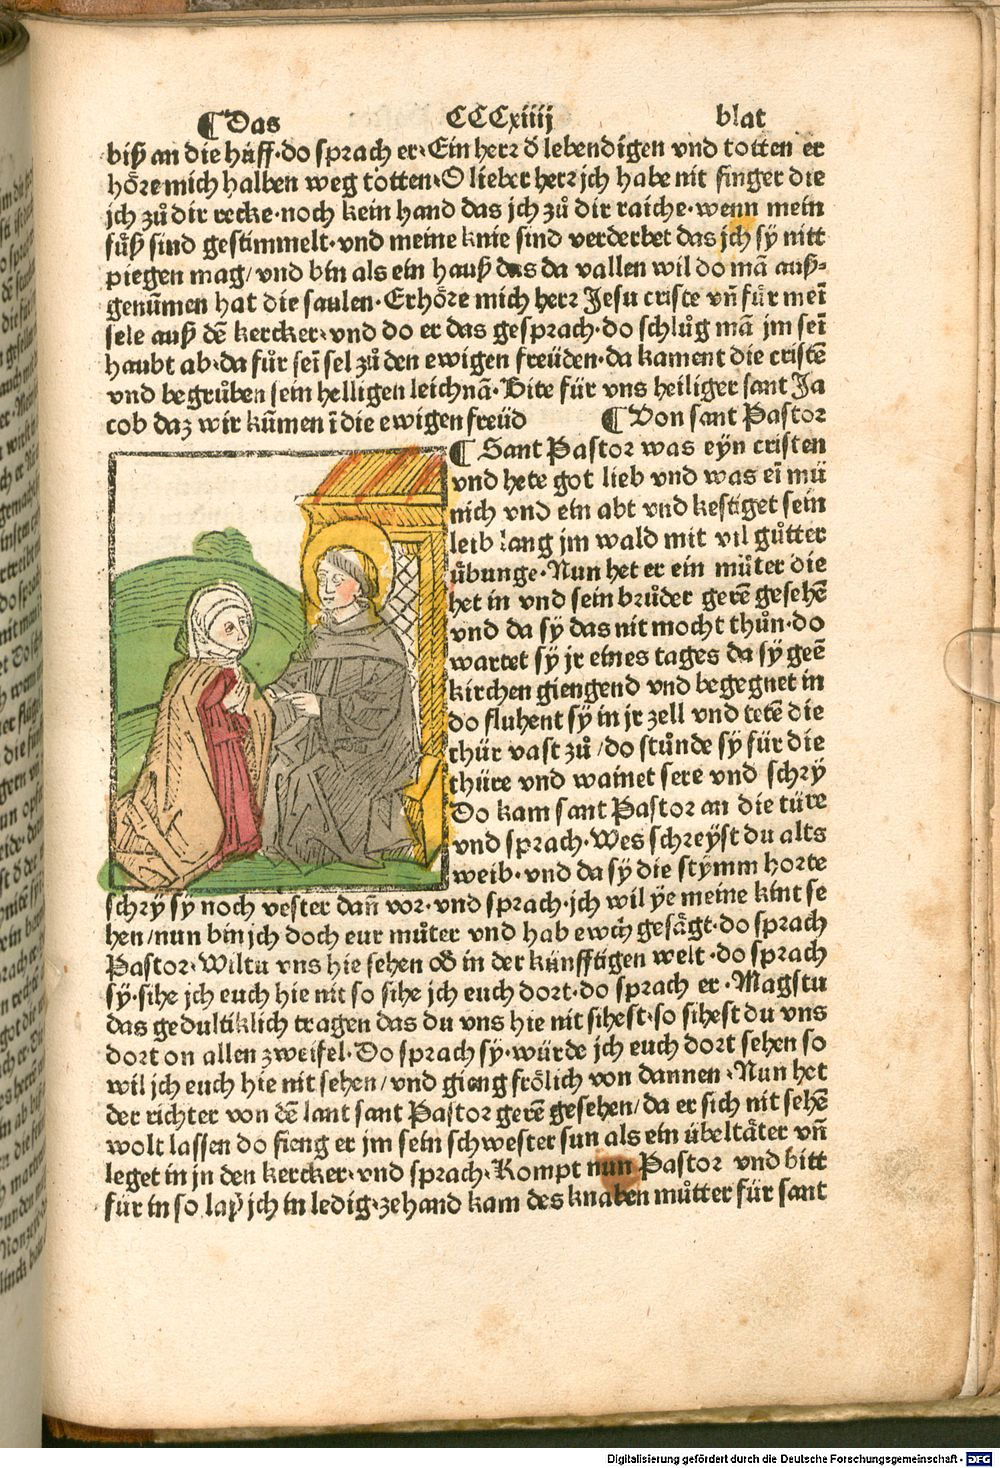 ¶ Das CCCxiiij blat
biß an die hüff · do sprach er · Ein herꝛ d̄ lebendigen vnd totten er
höꝛe mich halben weg totten · O lieber herꝛ jch habe nit finger die
jch zů dir recke · noch kein hand das jch zů dir raiche · wenn mein
fůß sind gestimmelt · vnd meine knie sind verderbet das jch sÿ nitt
piegen mag / vnd bin als ein hauß das da vallen wil do mā auß⸗
genūmen hat die saulen · Erhöꝛe mich herꝛ Jesu criste vn̄ fůr meī
sele auß dē kercker · vnd do er das gesprach · do schlůg mā jm seī
haubt ab · da fůr seī sel zů den ewigen freüden · da kament die cristē
vnd begrůben sein helligen leichnā · Bite für vns heiliger sant Ja
cob daz wir kūmen ī die ewigen freüd ¶ Von sant Pastoꝛ
¶ Sant Pastoꝛ was eÿn cristen
vnd hete got lieb vnd was eī mü
nich vnd ein abt vnd kestiget sein
leib lang jm wald mit vil gůtter
übunge · Nun het er ein můter die
het in vnd sein bꝛůder gerē gesehē
vnd da sÿ das nit mocht thůn · do
wartet sÿ jr eines tages da sÿ geē
kirchen giengend vnd begegnet in
do fluhent sÿ in jr zell vnd tetē die
thür vast zů / do stůnde sÿ für die
thüre vnd wainet sere vnd schrÿ
Do kam sant Pastoꝛ an die türe
vnd sprach · Wes schreÿst du alts
weib · vnd da sÿ die stÿmm horte
schꝛÿ sÿ noch vester dan̄ voꝛ · vnd sprach · jch wil ÿe meine kint se
hen / nun bin jch doch eur můter vnd hab ewch gesägt · do sprach
Pastoꝛ · Wiltu vns hie sehen od̄ in der künfftigen welt · do sprach
sÿ · sihe jch euch hie nit so sihe jch euch dort · do sprach er · Magstu
das gedultiklich tragen das du vns hie nit sihest · so sihest du vns
dort on allen zweifel · Do sprach sÿ · würde jch euch dort sehen so
wil jch euch hie nit sehen / vnd gieng frölich von dannen · Nun het
der richter von dē lant sant Pastoꝛ gerē gesehen / da er sich nit sehē
wolt lassen do fieng er jm sein schwester sun als ein übeltäter vn̄
leget in jn den kercker · vnd sprach · Kompt nun Pastoꝛ vnd bitt
für in so laß jch in ledig · zehand kam des knaben můtter für sant
Digitalisierung gefördert durch die Deutsche Forschungsgemeinschaft - DFG